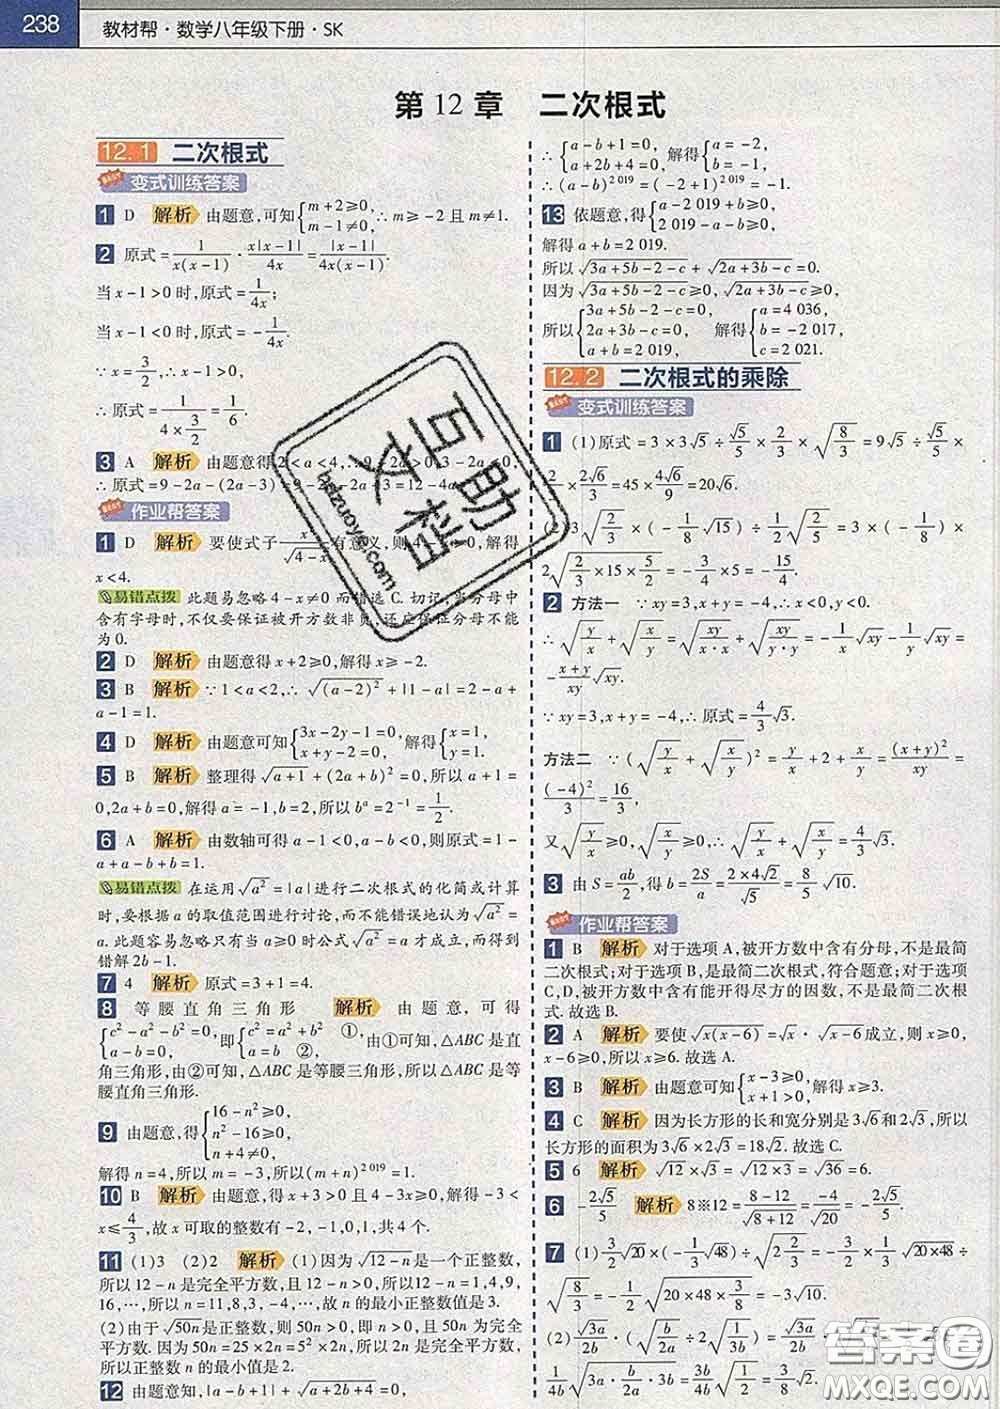 238 教材帮·数学八年级下册·SK
第 12 章 二次根式
12.1 二次根式
变式训练答案
1 D 解析 由题意,可知{m+2≥0, m-1≠0, ∴m≥-2且m≠1.
2 原式=1/(x(x-1))·x|x-1|/(4x)=|x-1|/(4x(x-1)).
当x-1>0时,原式=1/(4x);
当x-1<0时,原式=-1/(4x).
∵x=3/2,∴x-1>0,
∴原式=1/(4×3/2)=1/6.
3 A 解析 由题意得2<a<4,
作业帮答案
1 D 解析 要使式子x/√(4-x)有意义,则 解得
x<4.
易错点拨 此题易忽略4-x≠0而错选C.切记:当分母中
含有字母时,不仅要保证被开方数非负,还应保证分母不能
为0.
2 D 解析 由题意得x+2≥0,解得x≥-2.
3 B 解析 ∵1<a<2,∴√((a-2)²)+|1-a|=2-a+
a-1=1.
4 D 解析 由题意可知{3x-2y-1=0, x+y-2=0, 解得{x=1, y=1.
5 B 解析 整理得√(a+1)+(2a+b)²=0,所以a+1=
0,2a+b=0,解得a=-1,b=2,所以bᵃ=2⁻¹=1/2.
6 A 解析 由数轴可得a-1<0,a-b<0,则原式=1-
a+a-b+b=1.
易错点拨 在运用√(a²)=|a|进行二次根式的化简或计算
时,要根据a的取值范围进行讨论,而不能错误地认为√(a²)=
a.此题容易忽略只有当a≥0时公式√(a²)=a才成立,而得到
错解2b-1.
7 4 解析 原式=3+1=4.
8 等腰直角三角形 解析 由题意,可得
{c²-a²-b²=0, a-b=0, 即{c²=a²+b² ①, a=b ②, 由①可知,△ABC是直
角三角形,由②可知,△ABC是等腰三角形,所以△ABC是
等腰直角三角形.
9 由题意,得{16-n²≥0, n²-16≥0, n+4≠0,
解得n=4,所以m=-3,所以(m+n)²⁰¹⁹=1.
10 B 解析 由题意,得x+3>0且4-3x≥0,解得-3<
x≤4/3,故x可取的整数有-2,-1,0,1,共4个.
11 (1)3 (2)2 解析 (1)因为√(12-n)是一个正整数,
所以12-n是完全平方数,且大于0,所以12-n=1,4,9,
16,…,所以n=11,8,3,-4,…,故n的最小正整数值是3.
(2)由于√(50n)是正整数,则50n>0,所以n>0,50n是完全
平方数.因为50n=25×2n=5²×2n,所以2n是完全平方数,
所以正整数n的最小值是2.
12 由题意知,|a-b+1|+√(a+2b+4)=0,
∴{a-b+1=0, a+2b+4=0, 解得{a=-2, b=-1,
∴(a-b)²⁰¹⁹=(-2+1)²⁰¹⁹=-1.
13 依题意,得{a-2 019+b≥0, 2 019-a-b≥0,
解得a+b=2 019.
所以√(3a+5b-2-c)+√(2a+3b-c)=0.
因为√(3a+5b-2-c)≥0,√(2a+3b-c)≥0,
所以{3a+5b-2-c=0, 2a+3b-c=0, a+b=2 019, 解得{a=4 036, b=-2 017, c=2 021.
12.2 二次根式的乘除
变式训练答案
1 (1)原式=3×3√5÷√5/5×2/3×√(8/3)=9√5÷√5/5×
2/3×2√6/3=45×4√6/9=20√6.
3√(2/3)×(-1/8√15)÷1/2√(2/5)=3×(-1/8)×
2√(2/3×15×5/2)=-3/4×5=-15/4.
2 方法一 ∵xy=3,x+y=-4,∴x<0,y<0.
∴√(y/x)+√(x/y)=√(xy/(x·x))+√(xy/(y·y))=-1/x√xy-1/y√xy=
-(x+y)/xy √xy.
∵xy=3,x+y=-4,∴原式=4/3√3.
方法二 ∵(√(y/x)+√(x/y))²=y/x+2+x/y=(x+y)²/xy=
(-4)²/3=16/3,
又√(y/x)≥0,√(x/y)≥0,∴√(y/x)+√(x/y)=4/3√3.
3 由S=ab/2,得b=2S/a=2×4√2/√5=8/5√10.
作业帮答案
1 B 解析 对于选项A,被开方数中含有分母,不是最简
二次根式;对于选项B,是最简二次根式,符合题意;对于选项
C,D,被开方数中含有能开得尽方的因数,不是最简二次根
式.故选B.
2 A 解析 要使√(x(x-6))=√x·√(x-6)成立,则x≥0,
x-6≥0,所以x≥6.故选A.
3 B 解析 由题意可知{x-3≥0, x+1>0, 解得x≥3.
4 C 解析 因为长方形的长和宽分别是3√6和2√3,所以
长方形的面积为3√6×2√3=18√2.故选C.
5 6 解析 √12×√3=√(12×3)=√36=6.
6 -2√5/5 解析 8※12=(8-12)/√(8+12)=-4/√20=-2√5/5.
7 (1)3/2√20×(-1/3√48)÷√(2 2/3)=-3/2×1/3×√(20×48)÷
√(8/3)=-1/2√(20×48×3/8)=-3√10.
(2)√3a/2b·(√(b/a)÷2√(1/b))=√3a/2b·
1/4b√(3a·b/a·b)=
互助文档
hdzuoye.com
答案圈
MXQE.COM